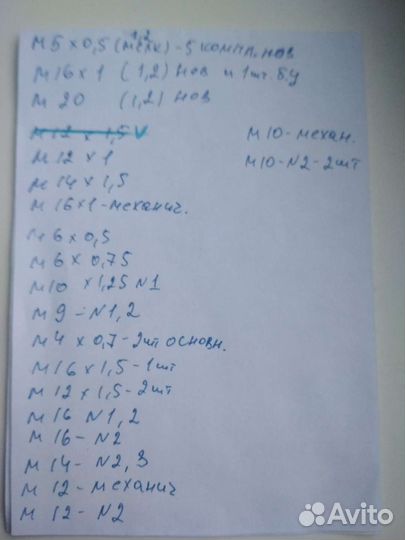 1,2
М5 х 0,5 (мелк) - 5 компл. нов
М16 х 1 (1,2) нов и 1шт. б.у
М 20 (1,2) нов
М 12 х 1,5 V
М10 - механ.
М 12 х 1
М10 - N2 - 2шт
М 14 х 1,5
М 16х1 - механич.
М 6 х 0,5
М 6 х 0,75
М10 х 1,25 N1
М 9 - N1,2
М 4 х 0,7 - 2шт основн.
М 16 х 1,5 - 1шт
М 12 х 1,5 - 2шт
М 16 N1,2
М 16 - N2
М 14 - N2,3
М 12 - механич
М 12 - N2
Avito